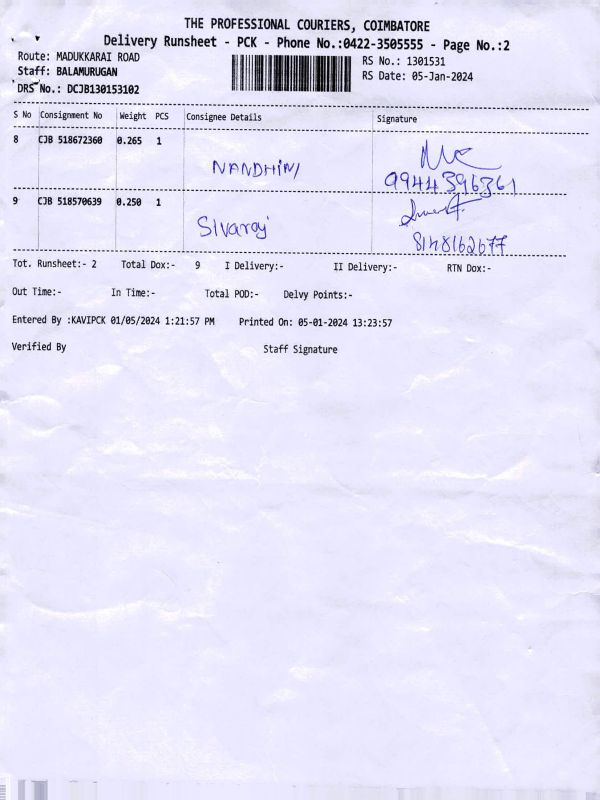 THE PROFESSIONAL COURIERS, COIMBATORE
Delivery Runsheet - PCK - Phone No.:0422-3505555 - Page No.:2
Route: MADUKKARAI ROAD
Staff: BALAMURUGAN
DRS No.: DCJB130153102
RS No.: 1301531
RS Date: 05-Jan-2024
S No Consignment No Weight PCS Consignee Details Signature
8 CJB 518672360 0.265 1
NANDHINI 9944396361
9 CJB 518570639 0.250 1
Sivaraj 8148162677
Tot. Runsheet:- 2 Total Dox:- 9 I Delivery:- II Delivery:- RTN Dox:-
Out Time:- In Time:- Total POD:- Delvy Points:-
Entered By :KAVIPCK 01/05/2024 1:21:57 PM Printed On: 05-01-2024 13:23:57
Verified By Staff Signature